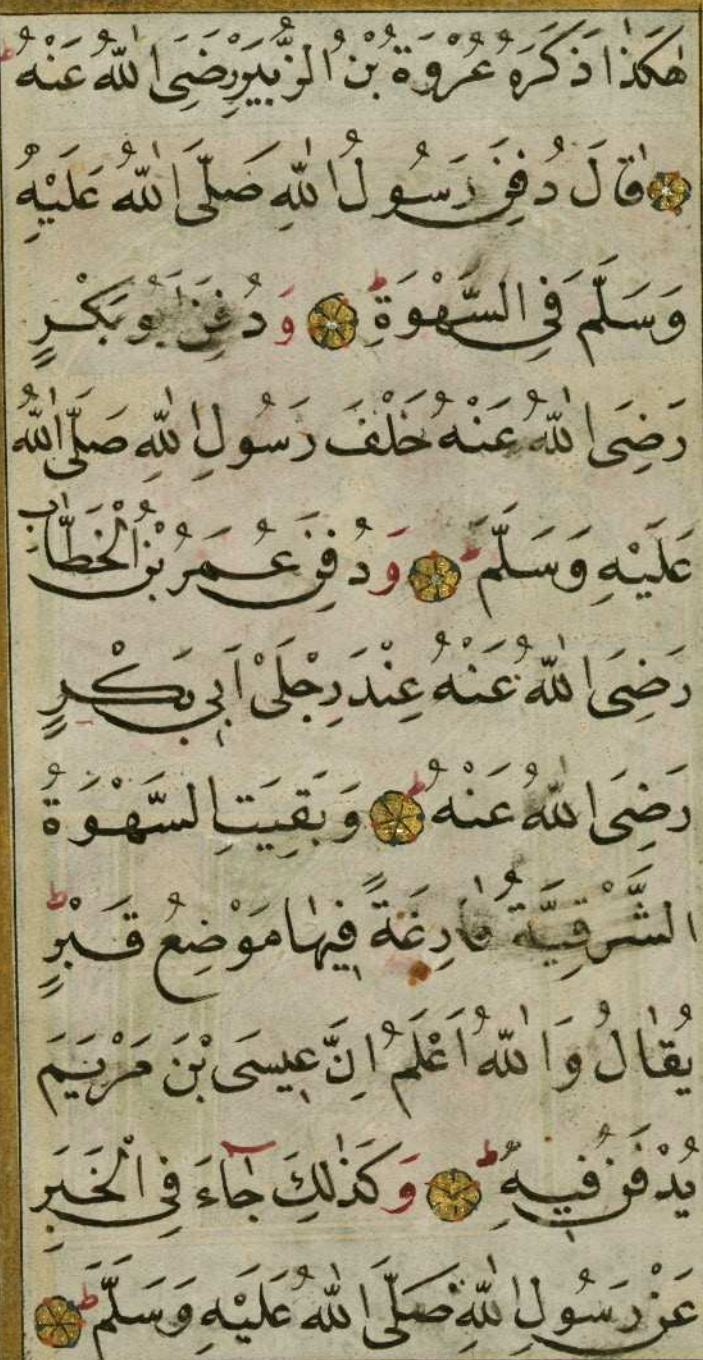 هٰكَذَا ذَكَرَهُ عُرْوَةُ بْنُ الزُّبَيْرِ رَضِيَ اللّٰهُ عَنْهُ
قَالَ دُفِنَ رَسُولُ اللّٰهِ صَلَّى اللّٰهُ عَلَيْهِ
وَسَلَّمَ فِي السَّهْوَةِ وَدُفِنَ اَبُو بَكْرٍ
رَضِيَ اللّٰهُ عَنْهُ خَلْفَ رَسُولِ اللّٰهِ صَلَّى اللّٰهُ
عَلَيْهِ وَسَلَّمَ وَدُفِنَ عُمَرُ بْنُ الْخَطَّابِ
رَضِيَ اللّٰهُ عَنْهُ عِنْدَ رِجْلَيْ اَبِي بَكْرٍ
رَضِيَ اللّٰهُ عَنْهُ وَبَقِيَتِ السَّهْوَةُ
الشَّرْقِيَّةُ فَارِغَةً فِيهَا مَوْضِعُ قَبْرٍ
يُقَالُ وَاللّٰهُ اَعْلَمُ اِنَّ عِيسَى بْنَ مَرْيَمَ
يُدْفَنُ فِيهِ وَكَذٰلِكَ جَاءَ فِي الْخَبَرِ
عَنْ رَسُولِ اللّٰهِ صَلَّى اللّٰهُ عَلَيْهِ وَسَلَّمَ